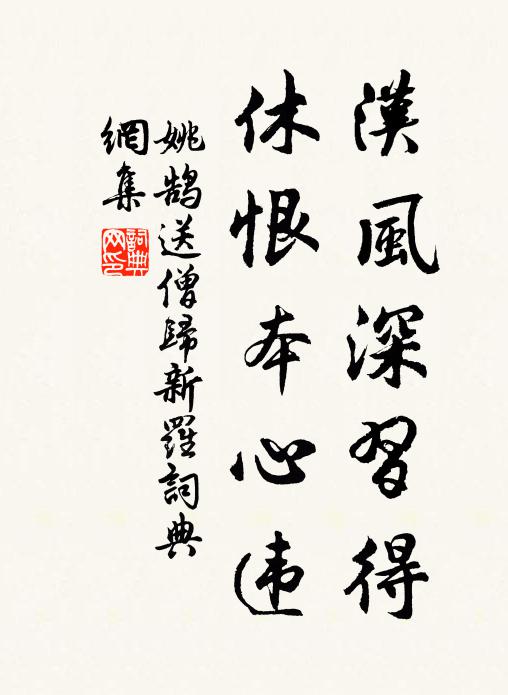 漢風深習得
休恨本心违
姚鵠送僧歸新羅詞典
網集
詞典网印